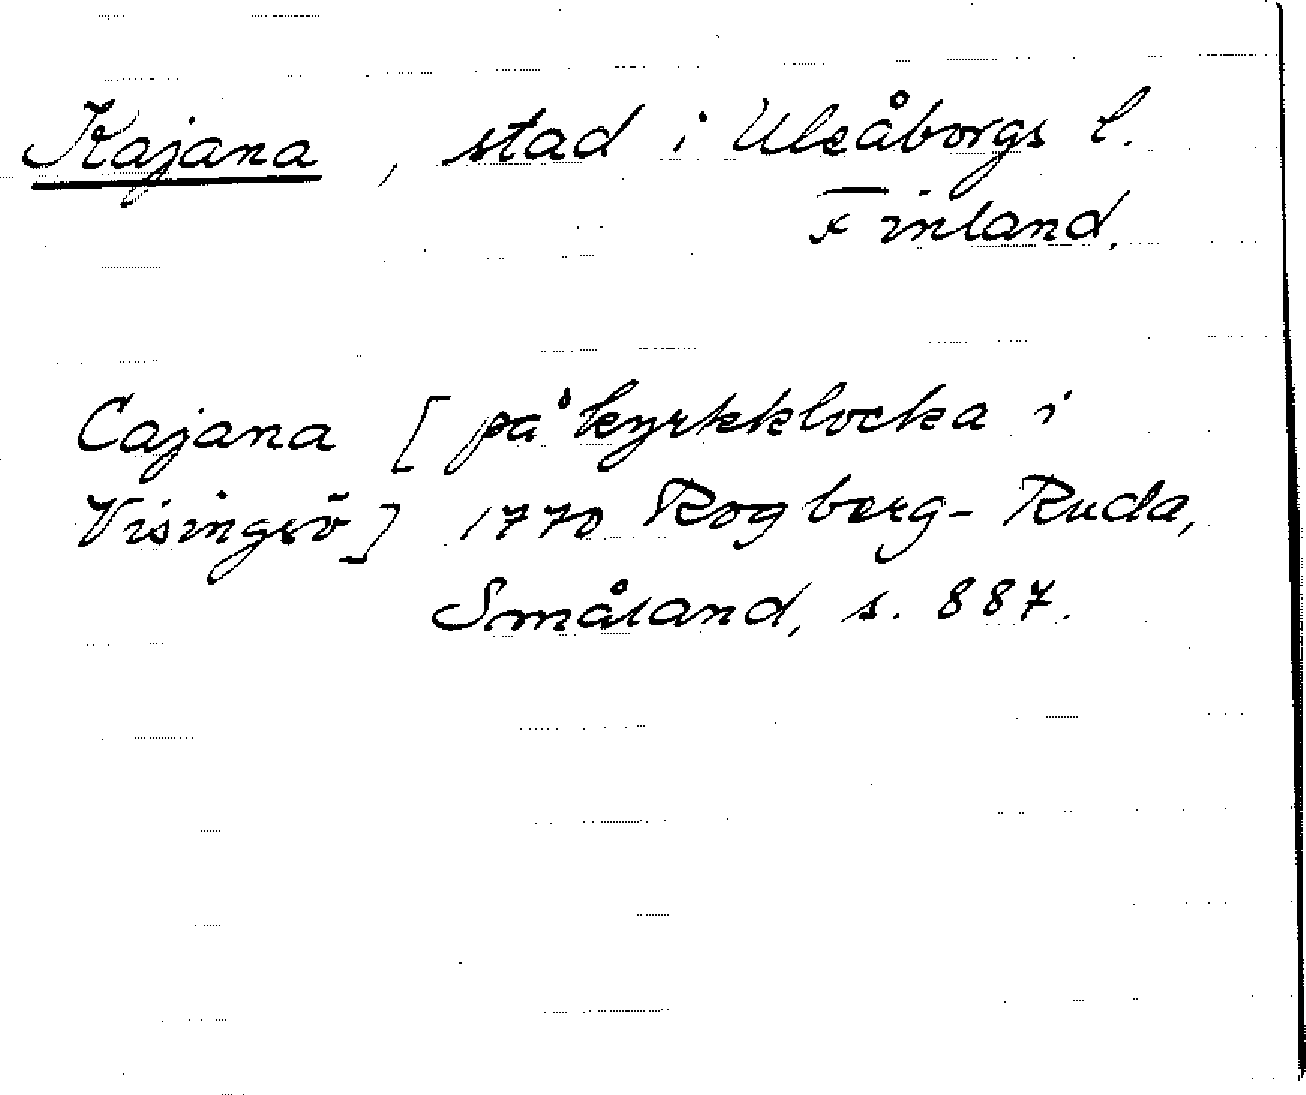 Kajana, stad i Uleåborgs l.
Finland.
Cajana [på kyrkklocka i
Visingsö] 1770 Rogberg-Ruda,
Småland, s. 887.